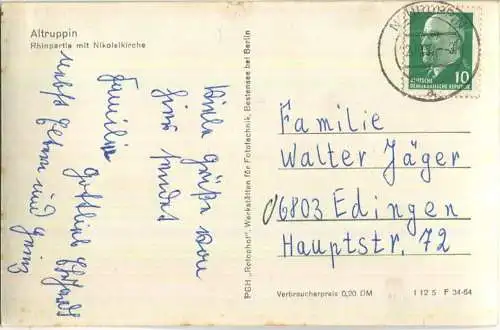 Altruppin
Rhinpartie mit Nikolaikirche
Viele Grüße von
hier sendet
Familie
Gottlieb
nebst
und
PGH „Rotophot", Werkstätten für Fototechnik, Bestensee bei Berlin
DEUTSCHE
DEMOKRATISCHE REPUBLIK
10
Familie
Walter Jäger
6803 Edingen
Hauptstr. 72
Verbraucherpreis 0,20 DM
I 12 5 · F 34-64